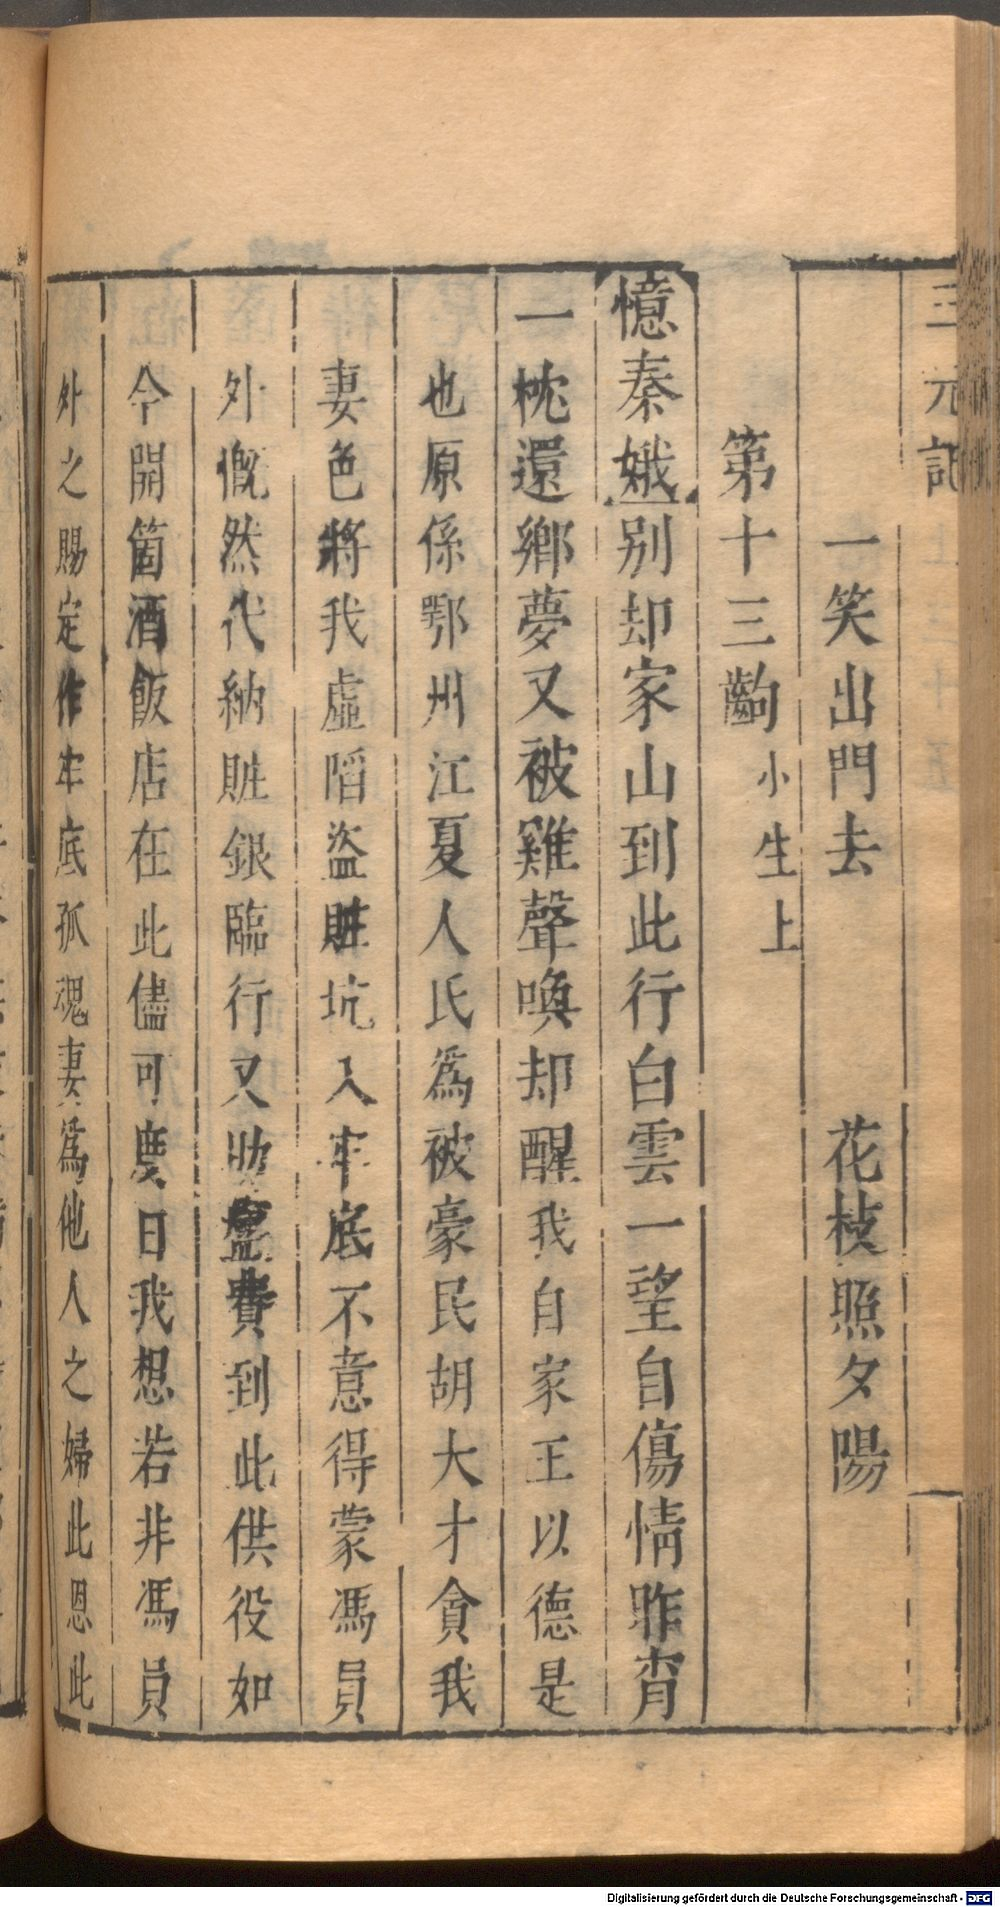 三元記
一笑出門去　花枝照夕陽
第十三齣 小生上
憶秦娥別却家山到此行白雲一望自傷情昨宵
一枕還鄉夢又被雞聲喚却醒我自家王以德是
也原係鄂州江夏人氏為被豪民胡大才貪我
妻色將我虛陷盜賍坑入牢底不意得蒙馮員
外慨然代納賍銀臨行又助盤費到此供役如
今開箇酒飯店在此儘可度日我想若非馮員
外之賜定作牢底孤魂妻為他人之婦此恩此
Digitalisierung gefördert durch die Deutsche Forschungsgemeinschaft - DFG